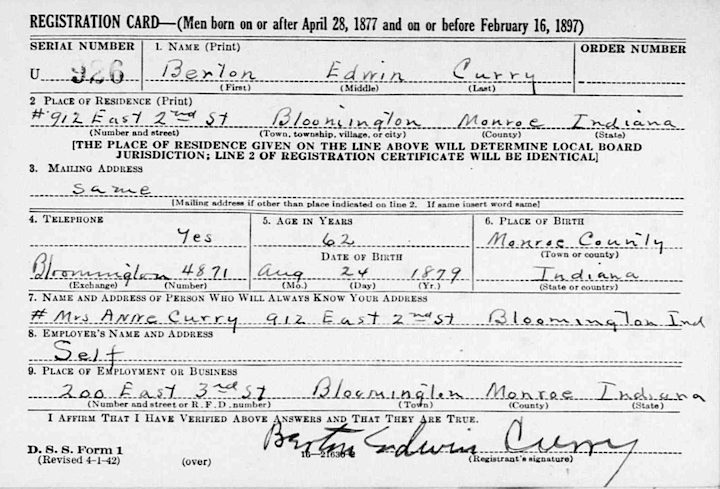 REGISTRATION CARD—(Men born on or after April 28, 1877 and on or before February 16, 1897)
SERIAL NUMBER 1. NAME (Print) ORDER NUMBER
U 926 Berton Edwin Curry
(First) (Middle) (Last)
2 PLACE OF RESIDENCE (Print)
#912 East 2nd St Bloomington Monroe Indiana
(Number and street) (Town, township, village, or city) (County) (State)
[THE PLACE OF RESIDENCE GIVEN ON THE LINE ABOVE WILL DETERMINE LOCAL BOARD
JURISDICTION; LINE 2 OF REGISTRATION CERTIFICATE WILL BE IDENTICAL]
3. MAILING ADDRESS
Same
[Mailing address if other than place indicated on line 2. If same insert word same]
4. TELEPHONE 5. AGE IN YEARS 6. PLACE OF BIRTH
Yes 62 Monroe County
DATE OF BIRTH (Town or county)
Bloomington 4871 Aug 24 1879 Indiana
(Exchange) (Number) (Mo.) (Day) (Yr.) (State or country)
7. NAME AND ADDRESS OF PERSON WHO WILL ALWAYS KNOW YOUR ADDRESS
# Mrs Anne Curry 912 East 2nd St Bloomington Ind
8. EMPLOYER'S NAME AND ADDRESS
Self
9. PLACE OF EMPLOYMENT OR BUSINESS
200 East 3rd St Bloomington Monroe Indiana
(Number and street or R. F. D. number) (Town) (County) (State)
I AFFIRM THAT I HAVE VERIFIED ABOVE ANSWERS AND THAT THEY ARE TRUE.
Berton Edwin Curry
D. S. S. Form 1 16—21630-2 (Registrant's signature)
(Revised 4-1-42) (over)